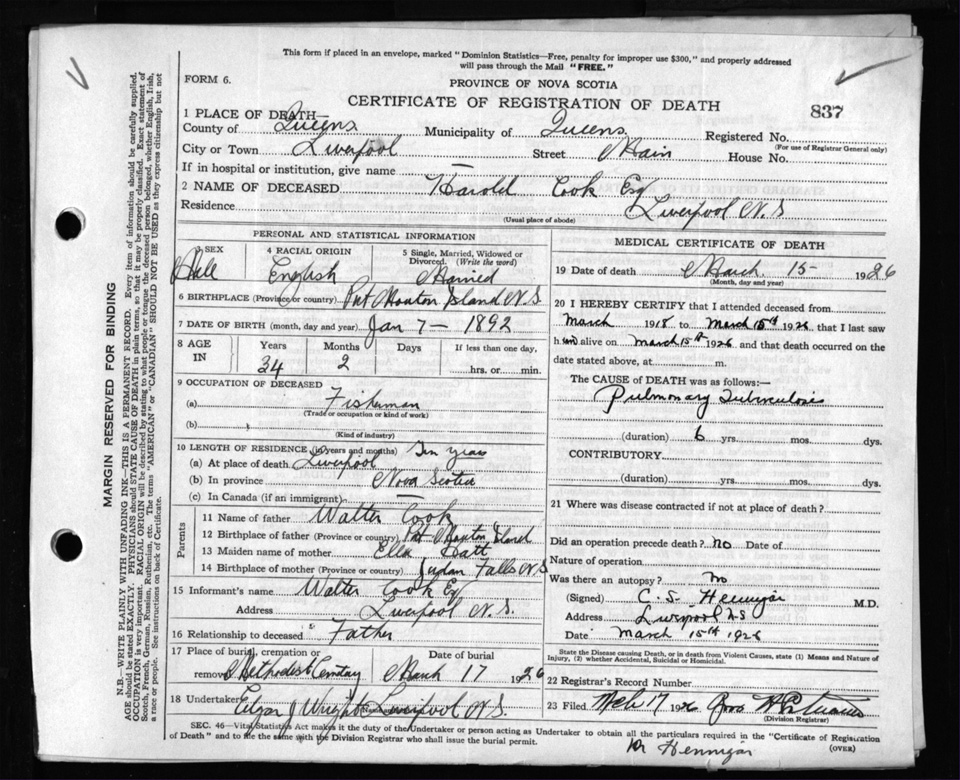 This form if placed in an envelope, marked "Dominion Statistics—Free, penalty for improper use $300," and properly addressed
will pass through the Mail "FREE."
FORM 6.
PROVINCE OF NOVA SCOTIA
CERTIFICATE OF REGISTRATION OF DEATH
837
1 PLACE OF DEATH—
County of Queens Municipality of Queens Registered No.
(For use of Registrar General only)
City or Town Liverpool Street Main House No.
If in hospital or institution, give name —
2 NAME OF DECEASED Harold Cook Esq
Residence Liverpool N.S
(Usual place of abode)
PERSONAL AND STATISTICAL INFORMATION
3 SEX Male
4 RACIAL ORIGIN English
5 Single, Married, Widowed or Divorced. (Write the word) Married
6 BIRTHPLACE (Province or country) Port Moxton Island N.S
7 DATE OF BIRTH (month, day and year) Jan 7 — 1892
8 AGE IN Years 34 Months 2 Days If less than one day, hrs. or min.
9 OCCUPATION OF DECEASED
(a) Fisherman
(Trade or occupation or kind of work)
(b)
(Kind of industry)
10 LENGTH OF RESIDENCE (in years and months) Ten years
(a) At place of death Liverpool
(b) In province Nova Scotia
(c) In Canada (if an immigrant) —
Parents
11 Name of father Walter Cook
12 Birthplace of father (Province or country) Port Moxton Island
13 Maiden name of mother Ella Hatt
14 Birthplace of mother (Province or country) Falls N.S
15 Informant's name Walter Cook Esq
Address Liverpool N.S.
16 Relationship to deceased Father
17 Place of burial, cremation or removal Methodist Cemetay Date of burial March 17 1926
18 Undertaker Edgar J Wright Liverpool N.S.
MEDICAL CERTIFICATE OF DEATH
19 Date of death March 15 — 1926
(Month, day and year)
20 I HEREBY CERTIFY that I attended deceased from
March 1918 to March 15th 1926, that I last saw
him alive on March 15th 1926 and that death occurred on the
date stated above, at m.
The CAUSE of DEATH was as follows:—
Pulmonary Tuberculosis
(duration) 6 yrs. mos. dys.
CONTRIBUTORY
(duration) yrs. mos. dys.
21 Where was disease contracted if not at place of death?
Did an operation precede death? no Date of
Nature of operation
Was there an autopsy? no
(Signed) C. S. Hennigar M.D.
Address Liverpool N.S
Date March 15th 1926
State the Disease causing Death, or in death from Violent Causes, state (1) Means and Nature of
Injury, (2) whether Accidental, Suicidal or Homicidal.
22 Registrar's Record Number
23 Filed Mch 17 1926
(Division Registrar)
SEC. 46—Vital Statistics Act makes it the duty of the Undertaker or person acting as Undertaker to obtain all the particulars required in the "Certificate of Registration
of Death" and to file the same with the Division Registrar who shall issue the burial permit.
(OVER)
Dr Hennigar
MARGIN RESERVED FOR BINDING
N.B.—WRITE PLAINLY WITH UNFADING INK—THIS IS A PERMANENT RECORD. Every item of information should be carefully supplied.
AGE should be stated EXACTLY. PHYSICIANS should STATE CAUSE OF DEATH in plain terms, so that it may be properly classified. Exact statement of
OCCUPATION is very important. RACIAL ORIGIN will be described by stating to what people or tongue the deceased person belonged, whether English, Irish,
Scotch, French, German, Russian, Ruthenian, etc. The terms "AMERICAN" or "CANADIAN" SHOULD NOT BE USED as they express citizenship but not
a race or people. See instructions on back of Certificate.